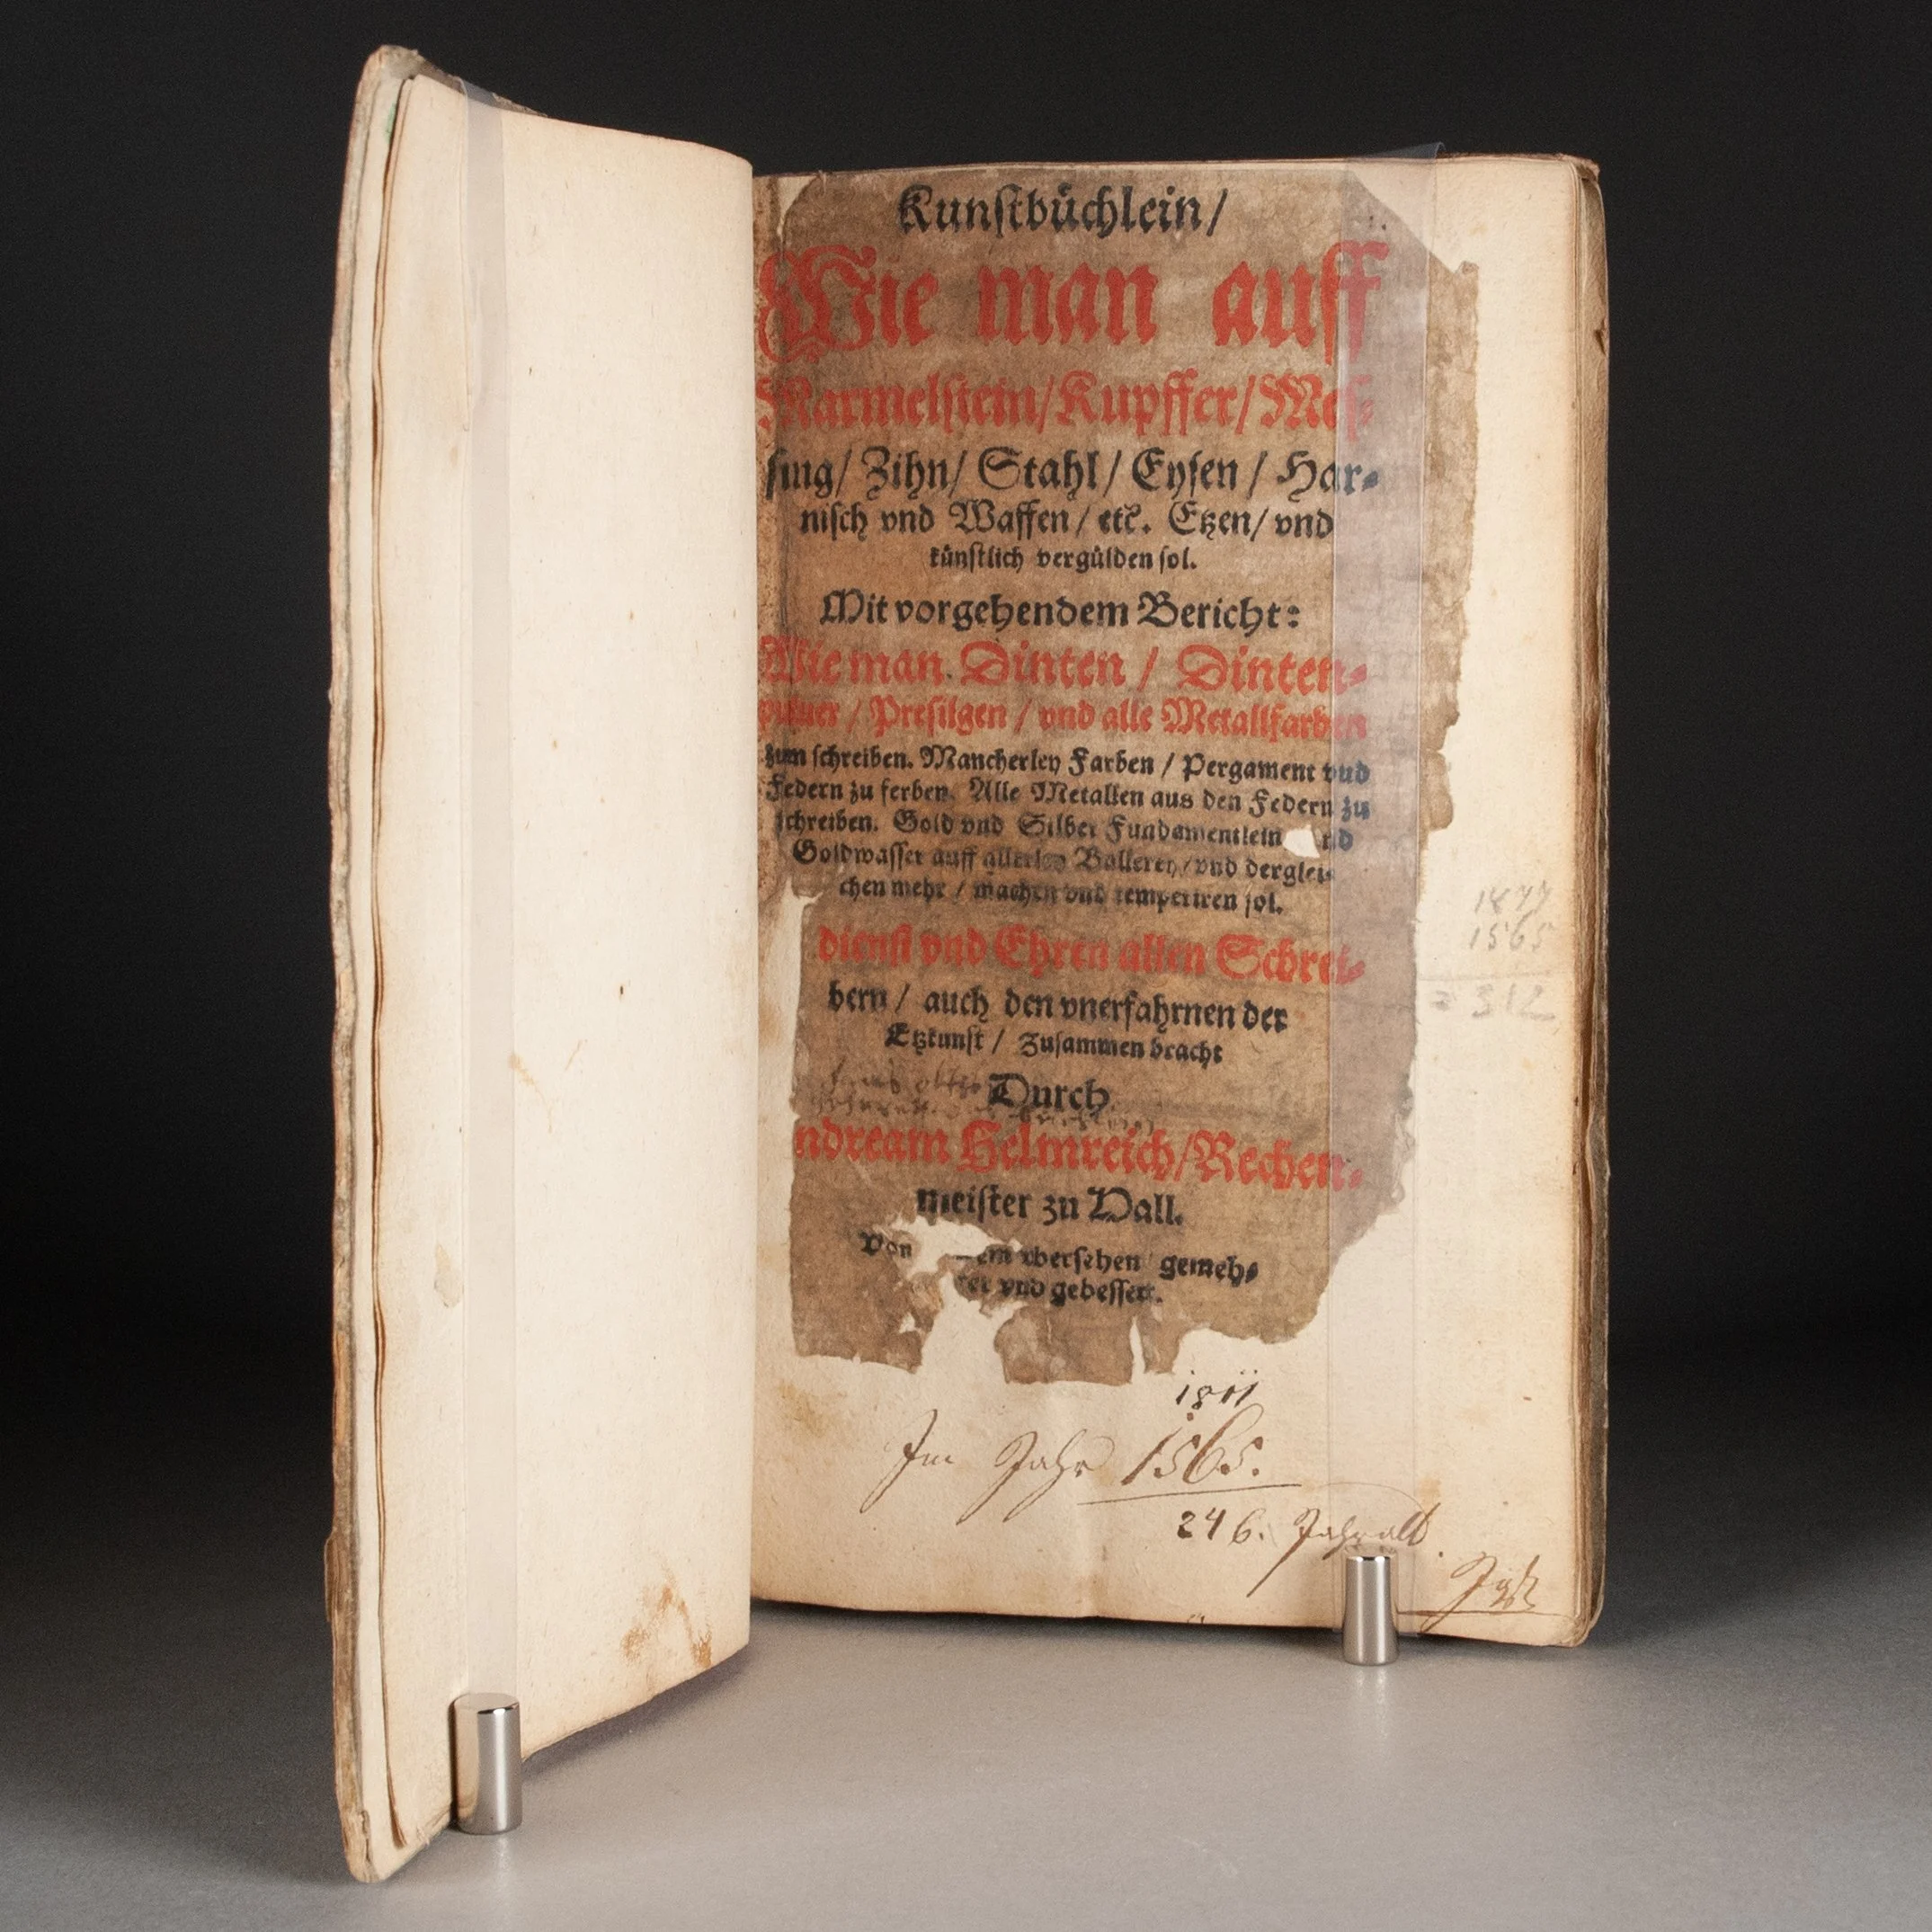 Kunstbüchlein/
Wie man auff
Marmelstein/Kupffer/Mes-
sing/ Zihn/ Stahl/ Eysen/ Har-
nisch vnd Waffen/ etc. Etzen/ vnd
künstlich vergülden sol.
Mit vorgehendem Bericht:
Wie man Dinten/ Dinten-
puluer/ Presilgen/ vnd alle Metallfarben
zum schreiben. Mancherley Farben/ Pergament vnd
Federn zu ferben. Alle Metallen aus den Federn zu
schreiben. Gold vnd Silber Fundamentlein
Goldwasser auff allerley Ballerey/ vnd derglei-
chen mehr/ machen vnd temperiren sol.
dienst vnd Ehren allen Schrei-
bern/ auch den vnerfahrnen der
Etzkunst/ Zusammen bracht
Durch
ndream Helmreich/Rechen-
meister zu Hall.
Von vbersehen gemeh-
vnd gebessert.
1877
1565
= 312
1811
Im Jahr 1565.
246. Jahr alt.